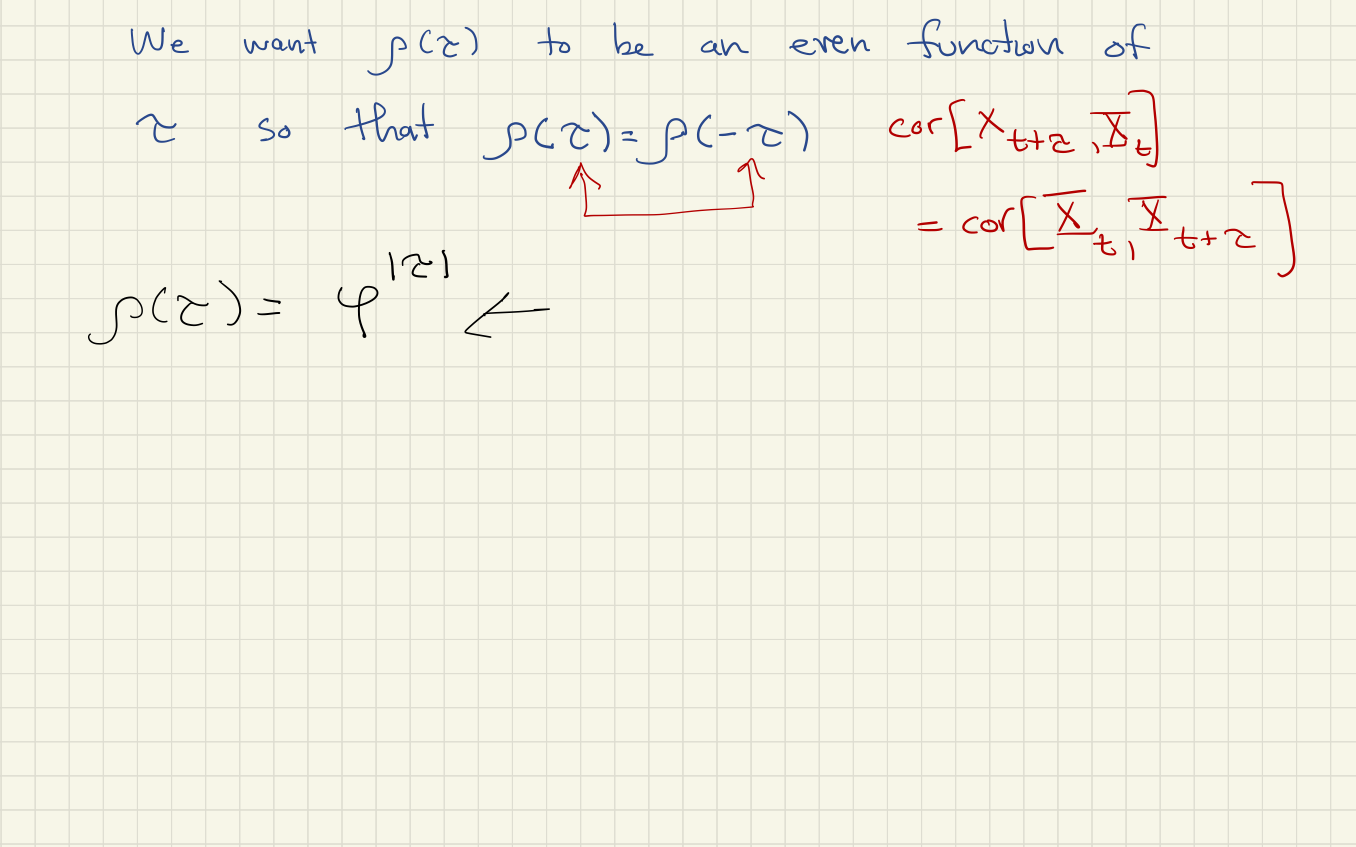 We want ρ(τ) to be an even function of
τ so that ρ(τ) = ρ(-τ) cor[X_{t+τ}, X_t]
= cor[X_t, X_{t+τ}]
ρ(τ) = φ^{|τ|} ←